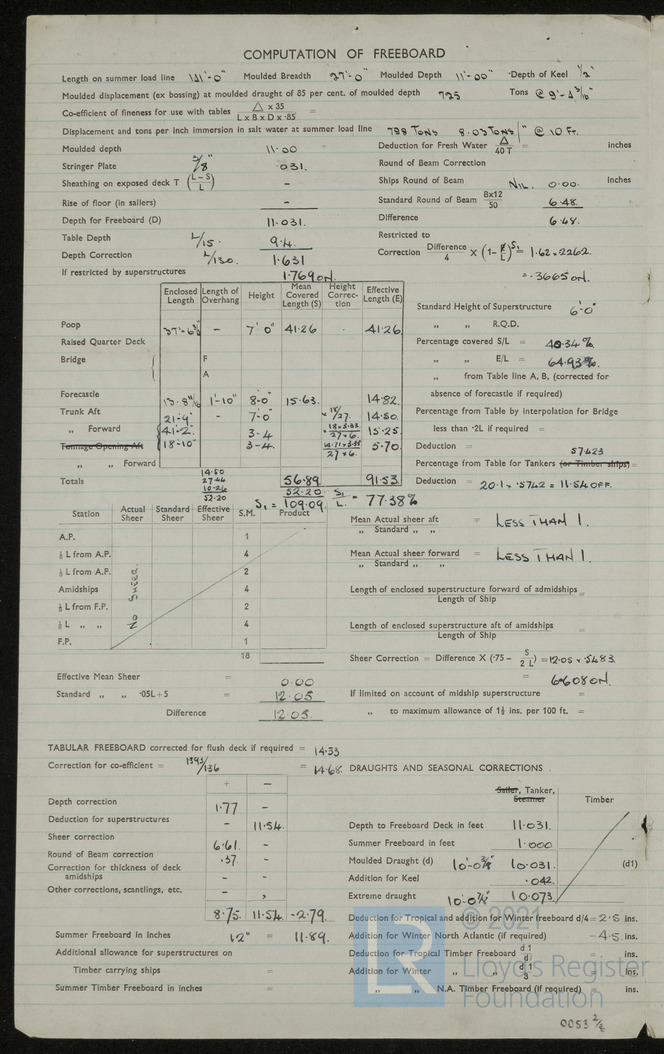 COMPUTATION OF FREEBOARD
Length on summer load line 141'-0" Moulded Breadth 27'-0" Moulded Depth 11'-00" Depth of Keel 1/2"
Moulded displacement (ex bossing) at moulded draught of 85 per cent. of moulded depth 725 Tons @ 9'-4 3/16"
Co-efficient of fineness for use with tables △ x 35 / L x B x D x ·85 =
Displacement and tons per inch immersion in salt water at summer load line 788 TONS 8.03 TONS/" @ 10 Ft.
Moulded depth 11.00 Deduction for Fresh Water △ / 40 T = inches
Stringer Plate 3/8" .031. Round of Beam Correction
Sheathing on exposed deck T (L-S / L) - Ships Round of Beam NIL. 0.00. inches
Rise of floor (in sailers) - Standard Round of Beam Bx12 / 50 6.48.
Depth for Freeboard (D) 11.031. Difference 6.48.
Table Depth L/15. 9.4. Restricted to
Depth Correction L/130. 1.631 Correction Difference / 4 X (1- S₁ / L) = 1.62 x .2262.
If restricted by superstructures 1.769 ON. = .3665 ON.
Enclosed Length Length of Overhang Height Mean Covered Length (S) Height Correction Effective Length (E)
Standard Height of Superstructure 6'-0"
Poop - 7' 0" 41.26 - 41.26 " " R.Q.D.
Raised Quarter Deck Percentage covered S/L = 40.34 %
Bridge F " " E/L = 64.93%.
A " from Table line A, B, (corrected for
Forecastle 1'-10" 8-0" 15.63. 14.82. absence of forecastle if required)
Trunk Aft 21-9" - 7'-0" x 18/27. 14.50. Percentage from Table by Interpolation for Bridge
" Forward 41-2" 3-4 15.25. less than ·2L if required =
Tonnage Opening Aft 18-10" 3-4. 5.70 Deduction = 57.423
" " Forward Percentage from Table for Tankers (or Timber ships) =
14.50
27.44
10.26
52.20
Totals 56.89 91.53 Deduction = 20.1 x .5742 = 11.54 OFF.
52.20
S₁ = 109.09. S₁ / L. = 77.38%
Station Actual Sheer Standard Sheer Effective Sheer S.M. Product Mean Actual sheer aft / " Standard " " = LESS THAN 1.
A.P. 1
⅙ L from A.P. 4 Mean Actual sheer forward / " Standard " " = LESS THAN 1.
⅓ L from A.P. 2
Amidships NO SHEER 4 Length of enclosed superstructure forward of admidships / Length of Ship =
⅓ L from F.P. 2
⅙ L " " 4 Length of enclosed superstructure aft of amidships / Length of Ship =
F.P. 1
18 Sheer Correction = Difference X (·75 - S / 2 L) = 12.05 x .5483
Effective Mean Sheer = 0.00 = 6.608 ON.
Standard " " ·05L+5 = 12.05 If limited on account of midship superstructure =
Difference 12.05. " to maximum allowance of 1½ ins. per 100 ft. =
TABULAR FREEBOARD corrected for flush deck if required = 14.33
Correction for co-efficient = = 14.68. DRAUGHTS AND SEASONAL CORRECTIONS.
+ - Sailer, Tanker, Steamer Timber
Depth correction 1.77 -
Deduction for superstructures - 11.54. Depth to Freeboard Deck in feet 11.031.
Sheer correction 6.61. - Summer Freeboard in feet 1.000
Round of Beam correction .37. - Moulded Draught (d) 10'-0 3/8" 10.031. (d1)
Correction for thickness of deck amidships - - Addition for Keel .042.
Other corrections, scantlings, etc. - Extreme draught 10'-0 7/8" 10.073.
8.75. 11.54. -2.79. Deduction for Tropical and addition for Winter freeboard d/4 = 2.5 ins.
Summer Freeboard in Inches 12" = 11.89. Addition for Winter North Atlantic (if required) - 4.5. ins.
Additional allowance for superstructures on Deduction for Tropical Timber Freeboard d 1 / 4 = ins.
Timber carrying ships = Addition for Winter " " d 1 / 3 = ins.
Summer Timber Freeboard in inches = " " N.A. Timber Freeboard (if required) = ins.
© 2021
LR
Lloyd's Register
Foundation
0053 2/2